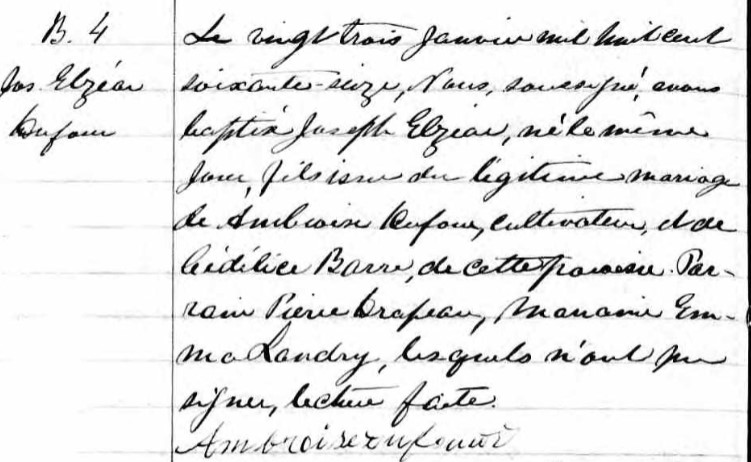 B. 4
Jos. Elzéar
Dufour
Le vingt trois Janvier mil huit cent
soixante-seize, Nous, soussigné, avons
baptisé Joseph Elzéar, né le même
jour, fils issu du légitime mariage
de Ambroise Dufour, cultivateur, et de
Barre, de cette paroisse. Par-
rain Pierre Drapeau, Marraine Em-
ma Landry, lesquels n'ont pu
signer, lecture faite.
Ambroise Dufour